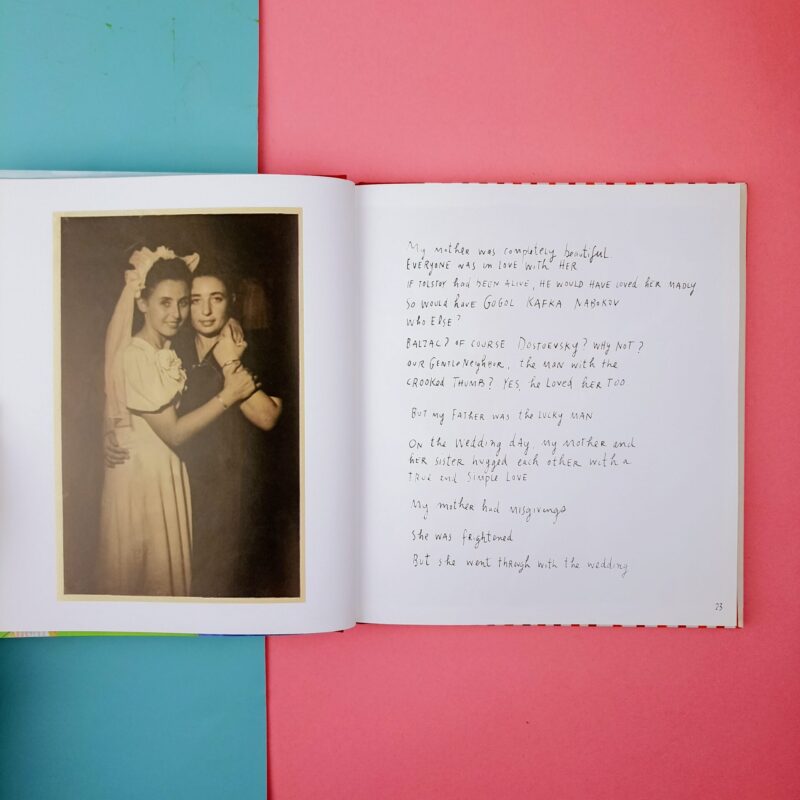 My mother was completely beautiful.
EVERYONE WAS IN LOVE WITH HER
IF TOLSTOY had BEEN ALIVE, HE WOULD HAVE LOVED HER MADLY
SO WOULD have GOGOL KAFKA NABOKOV
WHO ELSE?
BALZAC? OF COURSE DOSTOEVSKY? WHY NOT?
OUR GENTLE Neighbor, the MAN with the
CROOKED THUMB? YES, he LOVED HER TOO.
BUT my FATHER WAS the LUCKY MAN
ON the Wedding day, my mother and
HER SISTER hugged each other with a
TRUE and Simple LOVE
My mother had misgivings
She was frightened
But she went through with the wedding
23